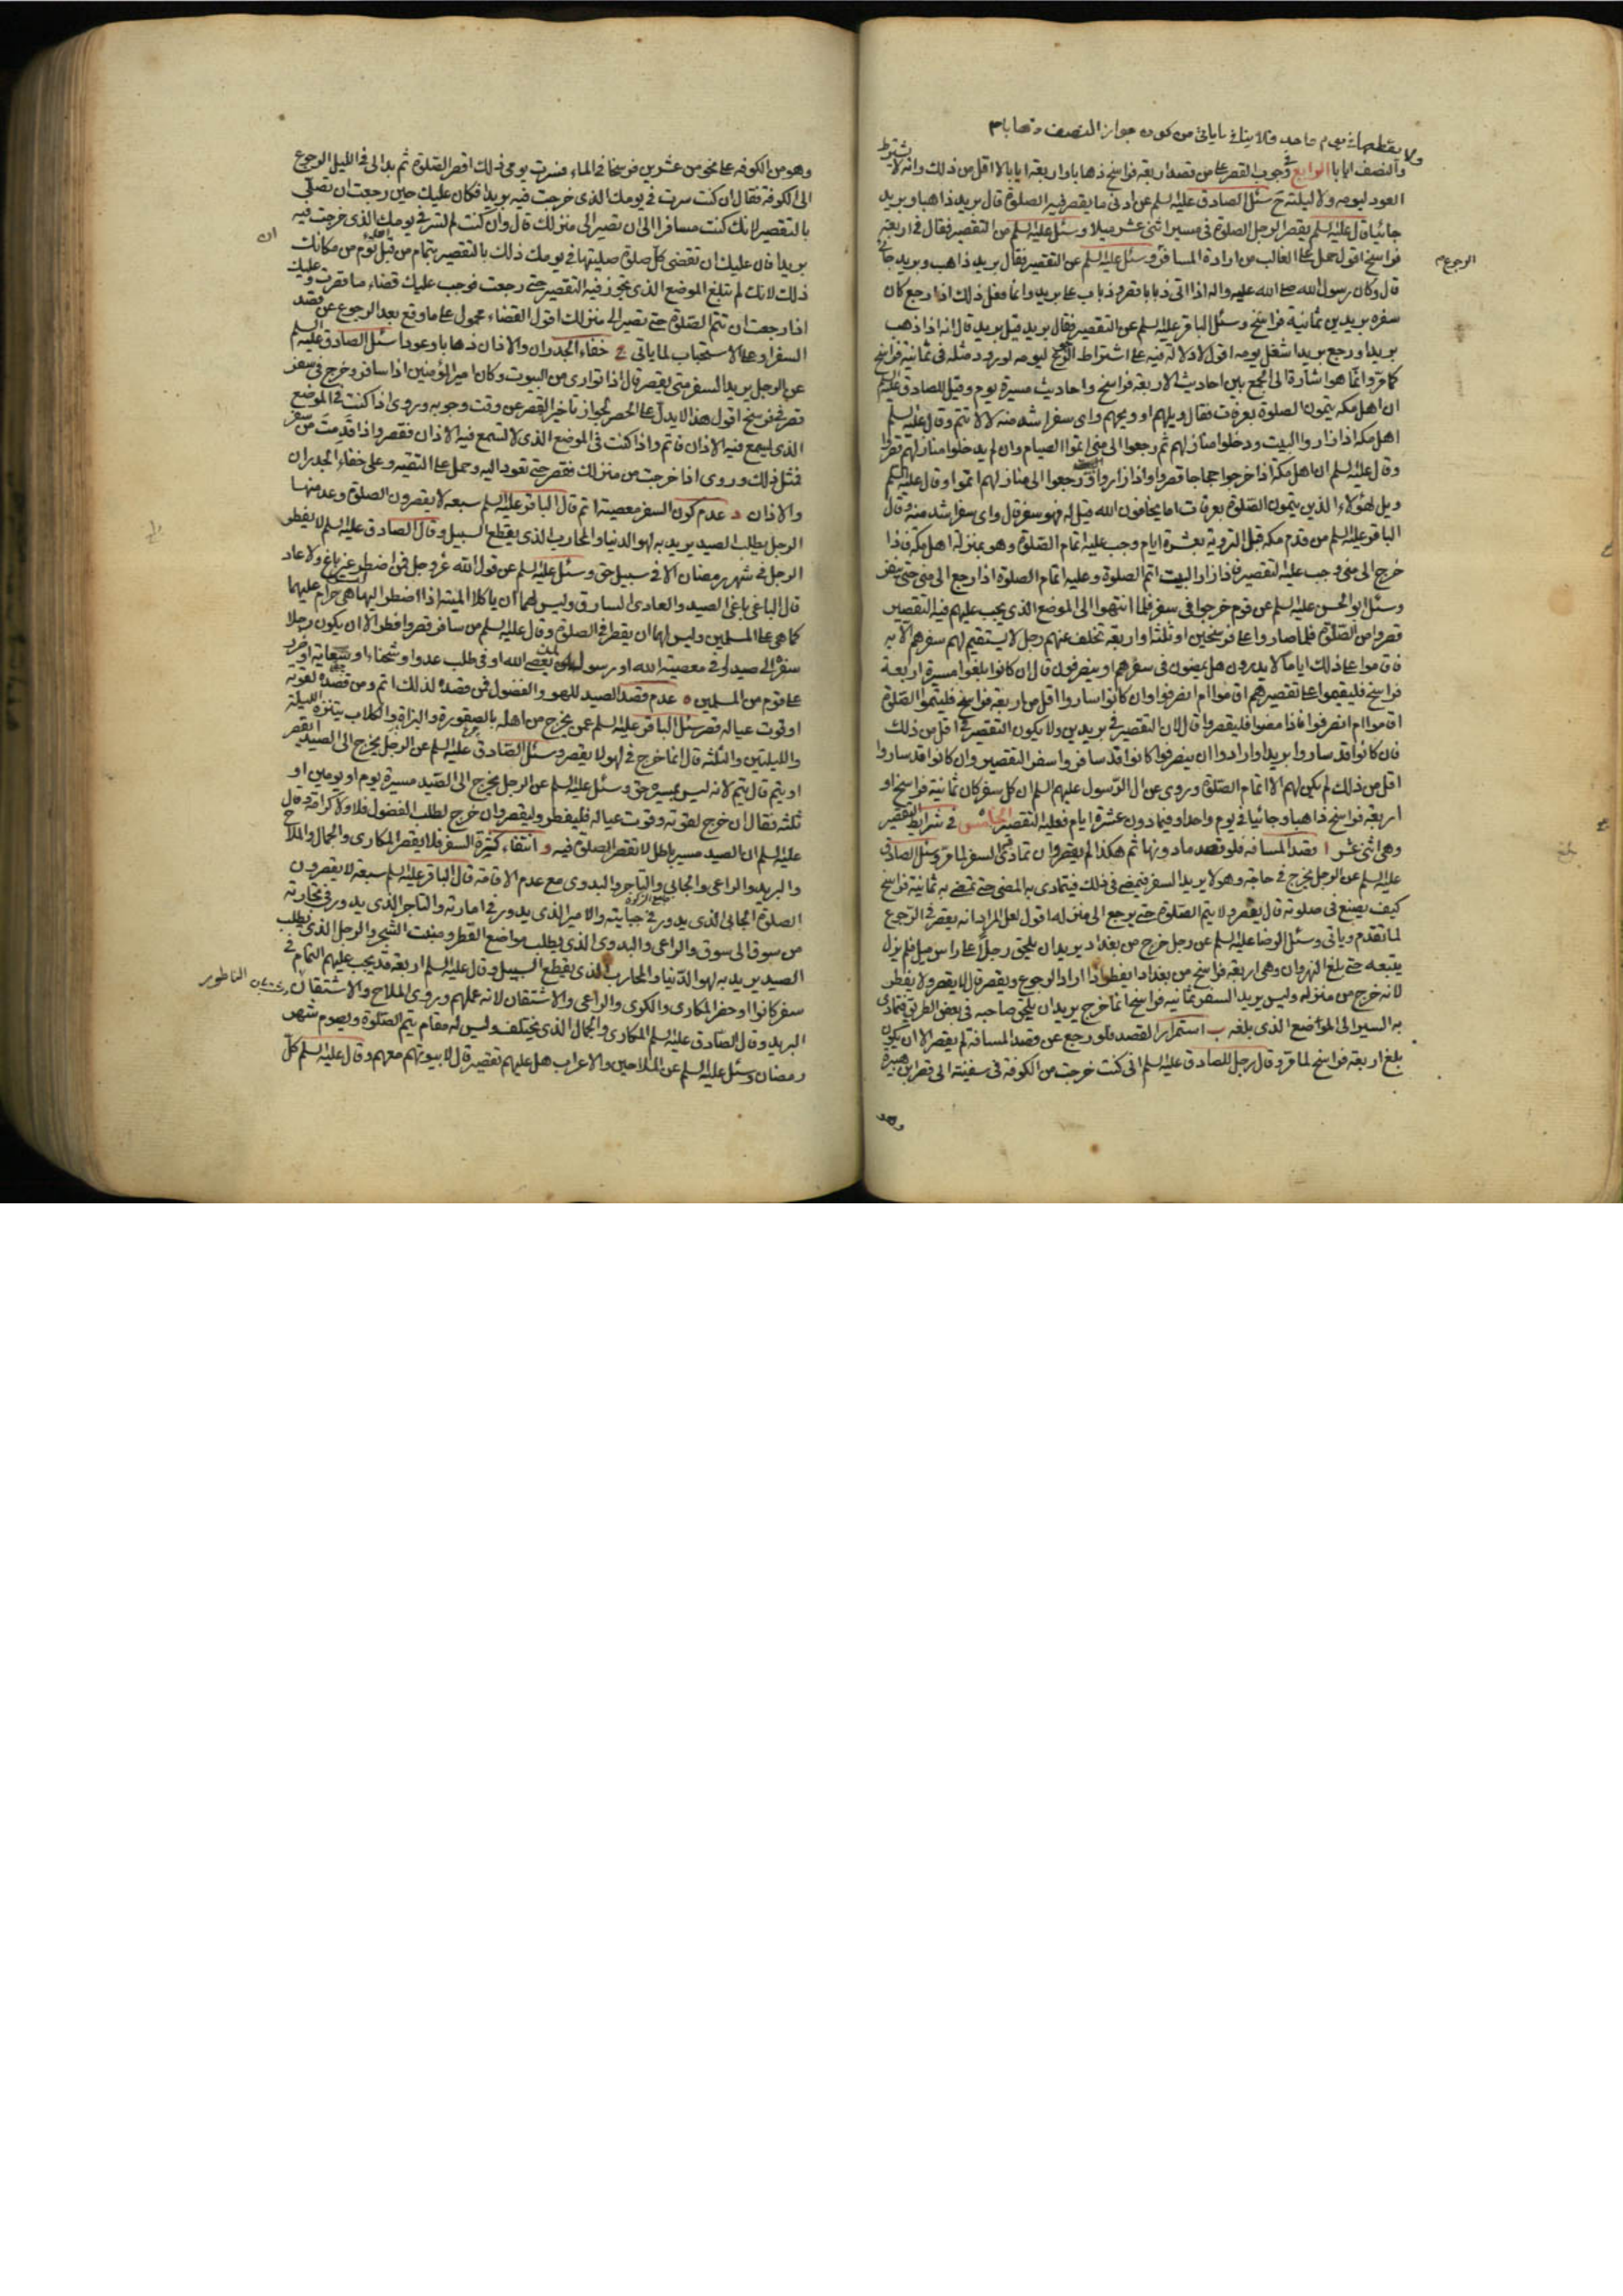 ولا يقطعها في يوم واحد ولا ينافي ما ياتي من كون جواز النصف ذهابا م
والنصف ايابا الرابع في وجوب القصر على من قصد اربعة فراسخ ذهابا واربعة ايابا لا اقل من ذلك وانه لا يشترط
العود ليومه ولا ليلته سئل الصادق عليه السلم عن ادنى ما يقصر فيه الصلوة قال بريد ذاهبا وبريد
جائيا وقال عليه السلم يقصر الرجل الصلوة في مسير اثنى عشر ميلا وسئل عليه السلم عن التقصير فقال في اربعة
فراسخ اقول حمل على الغالب من ارادة المسافر وسئل عليه السلم عن التقصير فقال بريد ذاهب وبريد جائي
الرجوع م
قال وكان رسول الله صلى الله عليه واله اذا اتى ذبابا قصر وذباب على بريد وانما فعل ذلك اذا رجع كان
سفره بريدين ثمانية فراسخ وسئل الباقر عليه السلم عن التقصير فقال بريد قيل بريد قال انه اذا ذهب
بريدا ورجع بريدا شغل يومه اقول لا دلالة فيه على اشتراط الرجوع ليومه لورود مثله في ثمانية فراسخ
كما مر وانما هو اشارة الى الجمع بين احاديث الاربعة فراسخ واحاديث مسيرة يوم وقيل للصادق عليه السلم
ان اهل مكة يتمون الصلوة بعرفات فقال ويلهم او ويحهم واى سفر اشد منه لا لا تتم وقال عليه السلم
اهل مكة اذا زاروا البيت ودخلوا منازلهم ثم رجعوا الى منى اتموا الصيام وان لم يدخلوا منازلهم قصروا
وقال عليه السلم ان اهل مكة اذا خرجوا حجاجا قصروا واذا زاروا ورجعوا الى منازلهم اتموا وقال عليه السلم
ويل لهؤلاء الذين يتمون الصلوة بعرفات اما يخافون الله قيل له فهو سفر قال واى سفر اشد منه وقال
الباقر عليه السلم من قدم مكة قبل التروية بعشرة ايام وجب عليه اتمام الصلوة وهو بمنزلة اهل مكة فاذا
خرج الى منى وجب عليه التقصير فاذا زار البيت اتم الصلوة وعليه اتمام الصلوة اذا رجع الى منى حتى ينفر
وسئل ابو الحسن عليه السلم عن قوم خرجوا في سفر فلما انتهوا الى الموضع الذى يجب عليهم فيه التقصير
قصروا من الصلوة فلما صاروا على فرسخين او ثلثة او اربعة تخلف عنهم رجل لا يستقيم لهم سفرهم الا به
فاقاموا على ذلك اياما لا يدرون هل يمضون في سفرهم او ينصرفون قال ان كانوا بلغوا مسيرة اربعة
فراسخ فليقيموا على تقصيرهم اقاموا ام انصرفوا وان كانوا ساروا اقل من اربعة فراسخ فليتموا الصلوة
اقاموا ام انصرفوا فاذا مضوا فليقصروا قال لان التقصير في بريدين ولا يكون التقصير في اقل من ذلك
فان كانوا قد ساروا بريدا وارادوا ان ينصرفوا كانوا قد سافروا سفر التقصير وان كانوا قد ساروا
اقل من ذلك لم يكن لهم الا اتمام الصلوة وروى عن ال الرسول عليهم السلم ان كل سفر كان ثمانية فراسخ او
اربعة فراسخ ذاهبا وجائيا في يوم واحد او فيما دون عشرة ايام فعليه التقصير الخامس في شرايط التقصير
وهى اثنى عشر ا قصد المسافة فلو قصد ما دونها ثم هكذا لم يقصر وان تمادى في السفر لما مر وسئل الصادق
عليه السلم عن الرجل يخرج في حاجة وهو لا يريد السفر فيمضى في ذلك فيتمادى به المضى حتى تمضى به ثمانية فراسخ
كيف يصنع في صلوته قال يقصر ولا يتم الصلوة حتى يرجع الى منزله اقول لعل المراد انه يقصر في الرجوع
لما تقدم وياتى وسئل الرضا عليه السلم عن رجل خرج من بغداد يريد ان يلحق رجلا على راس ميل فلم يزل
يتبعه حتى بلغ النهروان وهى اربعة فراسخ من بغداد ايفطر اذا اراد الرجوع ويقصر قال لا يقصر ولا يفطر
لانه خرج من منزله وليس يريد السفر ثمانية فراسخ انما خرج يريد ان يلحق صاحبه في بعض الطريق فتمادى
به السير الى الموضع الذى بلغه ب استمرار القصد فلو رجع عن قصد المسافة لم يقصر الا ان يكون
بلغ اربعة فراسخ لما مر وقال رجل للصادق عليه السلم انى كنت خرجت من الكوفة في سفينة الى قصر ابن هبيرة
وهو
وهو من الكوفة على نحو من عشرين فرسخا في الماء فسرت يومى ذلك اقصر الصلوة ثم بدا لى في الليل الرجوع
الى الكوفة فقال ان كنت سرت في يومك الذى خرجت فيه بريدا فكان عليك حين رجعت ان تصلى
بالتقصير لانك كنت مسافرا الى ان تصير الى منزلك قال وان كنت لم تسر في يومك الذى خرجت فيه
بريدا فان عليك ان تقضى كل صلوة صليتها في يومك ذلك بالتقصير بتمام من قبل ان تؤم من مكانك
ان
ذلك لانك لم تبلغ الموضع الذى يجوز فيه التقصير حتى رجعت فوجب عليك قضاء ما قصرت وعليك
اذا رجعت ان تتم الصلوة حتى تصير الى منزلك اقول القضاء محمول على ما وقع بعد الرجوع عن قصد
السفر او على الاستحباب لما ياتى ج خفاء الجدران والاذان ذهابا وعودا سئل الصادق عليه السلم
عن الرجل يريد السفر متى يقصر قال اذا توارى من البيوت وكان امير المؤمنين اذا سافر وخرج في سفر
قصر في فرسخ اقول هذا لا يدل على الحصر لجواز تاخير القصر عن وقت وجوبه وروى اذا كنت في الموضع
الذى تسمع فيه الاذان فاتم واذا كنت في الموضع الذى لا تسمع فيه الاذان فقصر واذا قدمت من سفر
فمثل ذلك وروى اذا خرجت من منزلك فقصر حتى تعود اليه وحمل على التقية وعلى خفاء الجدران
والاذان د عدم كون السفر معصية اتم قال الباقر عليه السلم سبعة لا يقصرون الصلوة وعد منها
الرجل يطلب الصيد يريد به لهو الدنيا والمحارب الذى يقطع السبيل وقال الصادق عليه السلم لا يفطر
الرجل في شهر رمضان الا في سبيل حق وسئل عليه السلم عن قول الله عز وجل فمن اضطر غير باغ ولا عاد
قال الباغى باغى الصيد والعادى السارق وليس لهما ان ياكلا الميتة اذا اضطرا اليها هى حرام عليهما
كما هى على المسلمين وليس لهما ان يقصرا في الصلوة وقال عليه السلم من سافر قصر وافطر الا ان يكون رجلا
سفره الى صيد او في معصية الله او رسول لمن يعصى الله او في طلب عدو او شحناء او سعاية او ضرر
على قوم من المسلمين ه عدم قصد الصيد للهو والفضول فمن قصده لذلك اتم ومن قصده لقوته
او قوت عياله قصر سئل الباقر عليه السلم عمن يخرج من اهله بالصقورة والبزاة والكلاب يتنزه الليلة
والليلتين والثلثة قال انما خرج في لهو لا يقصر وسئل الصادق عليه السلم عن الرجل يخرج الى الصيد ايقصر
او يتم قال يتم لانه ليس بمسير حق وسئل عليه السلم عن الرجل يخرج الى الصيد مسيرة يوم او يومين او
ثلثة فقال ان خرج لقوته وقوت عياله فليفطر وليقصر وان خرج لطلب الفضول فلا ولا كرامة وقال
عليه السلم ان الصيد مسير باطل لا تقصر الصلوة فيه و انتفاء كثرة السفر فلا يقصر المكارى والجمال والملاح
والبريد والراعى والجابى والتاجر والبدوى مع عدم الاقامة قال الباقر عليه السلم سبعة لا يقصرون
الصلوة الجابى الذى يدور في جبايته والامير الذى يدور في امارته والتاجر الذى يدور في تجارته
من سوق الى سوق والراعى والبدوى الذى يطلب مواضع القطر ومنبت الشجر والرجل الذى يطلب
الصيد يريد به لهو الدنيا والمحارب الذى يقطع السبيل وقال عليه السلم اربعة قد يجب عليهم التمام في
سفر كانوا او حضر المكارى والكرى والراعى والاشتقان لانه عملهم وروى الملاح والاشتقان
الناطور
البريد وقال الصادق عليه السلم المكارى والجمال الذى يختلف وليس له مقام يتم الصلوة ويصوم شهر
رمضان وسئل عليه السلم عن الملاحين والاعراب هل عليهم تقصير قال لا بيوتهم معهم وقال عليه السلم كل